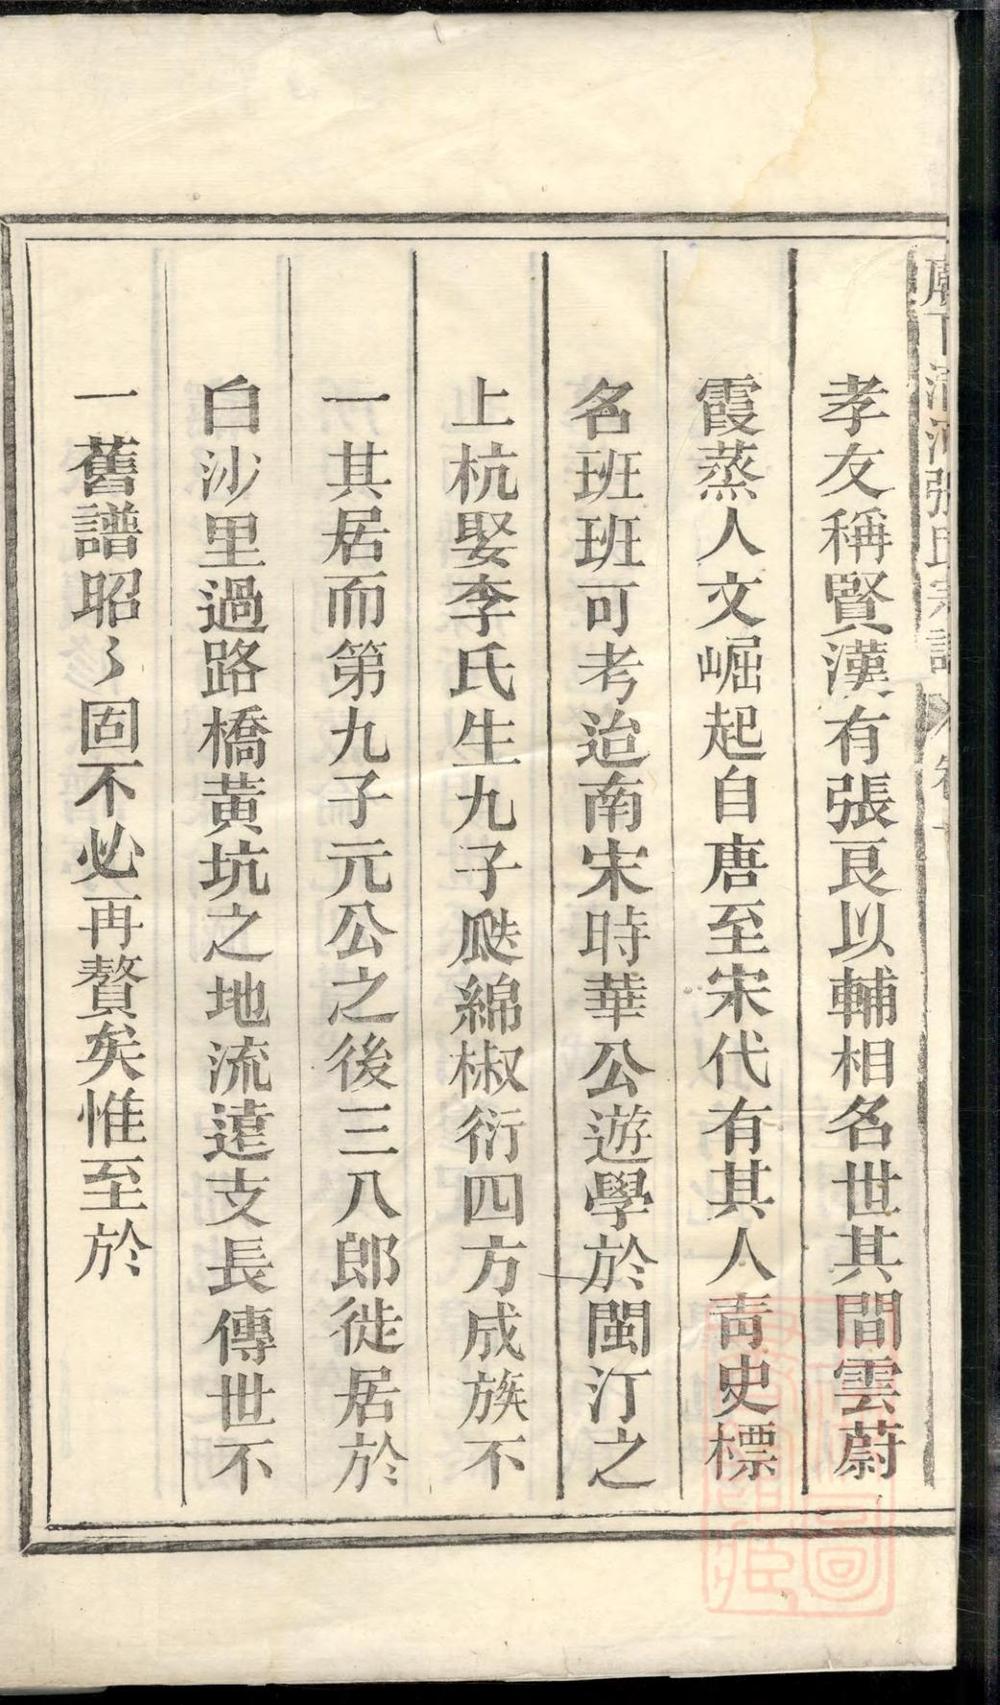 孝友稱賢漢有張良以輔相名世其間雲蔚
霞蒸人文崛起自唐至宋代有其人靑史標
名班班可考迨南宋時華公遊學於閩汀之
上杭娶李氏生九子瓞綿椒衍四方成族不
一其居而第九子元公之後三八郎徙居於
白沙里過路橋黃坑之地流遠支長傳世不
一舊譜昭〻固不必再贅矣惟至於